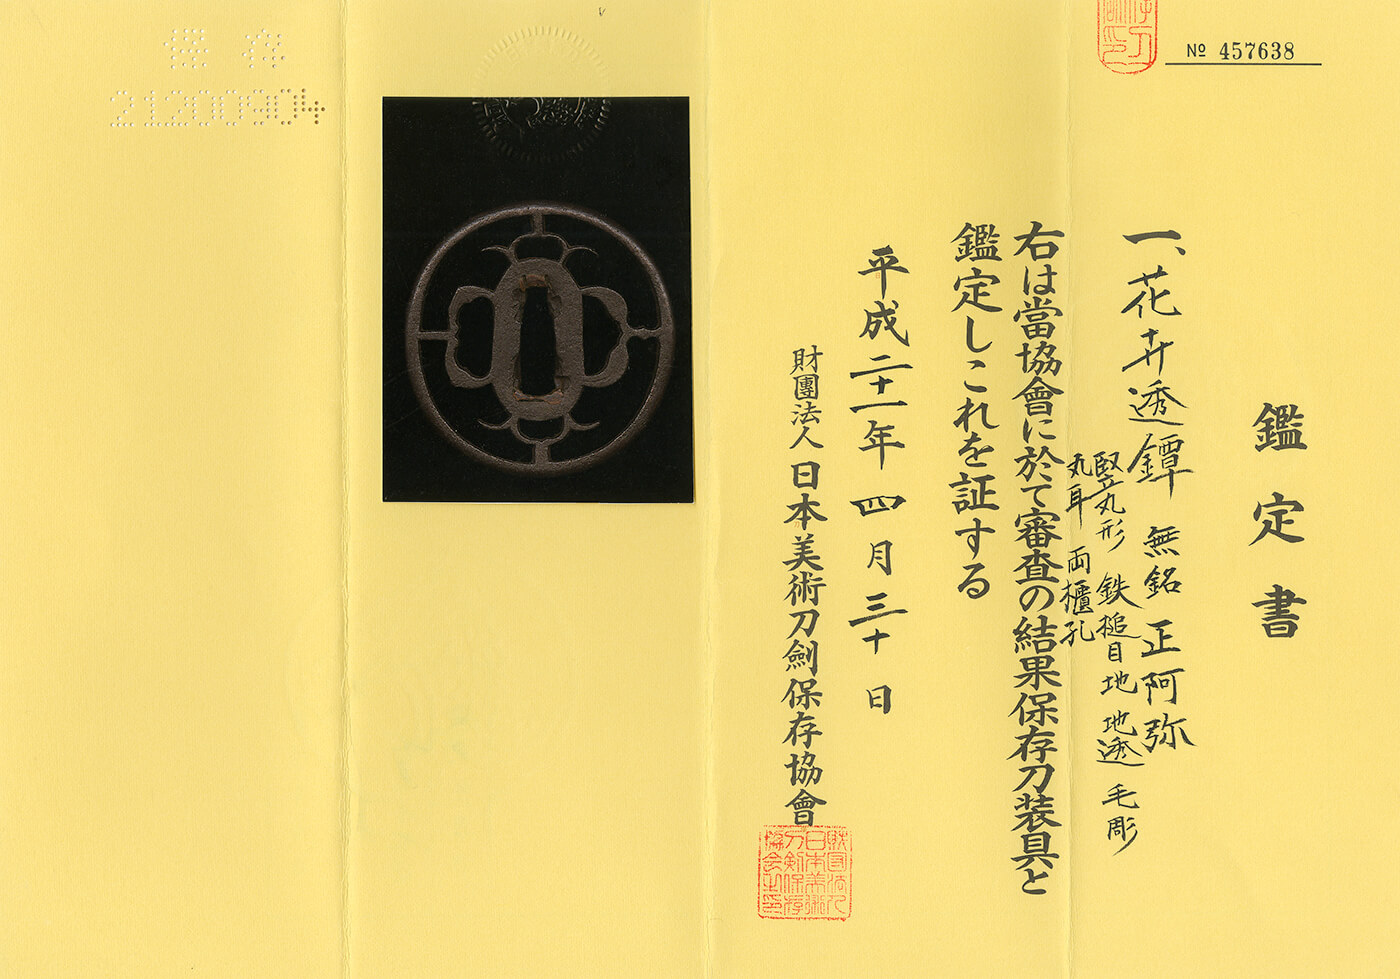 № 457638
鑑定書
一、花卉透鐔 無銘 正阿弥
竪丸形 鉄槌目地 地透 毛彫
丸耳 両櫃孔
右は當協會に於て審査の結果保存刀装具と
鑑定しこれを証する
平成二十一年四月三十日
財團法人日本美術刀劍保存協會
保存
21200904